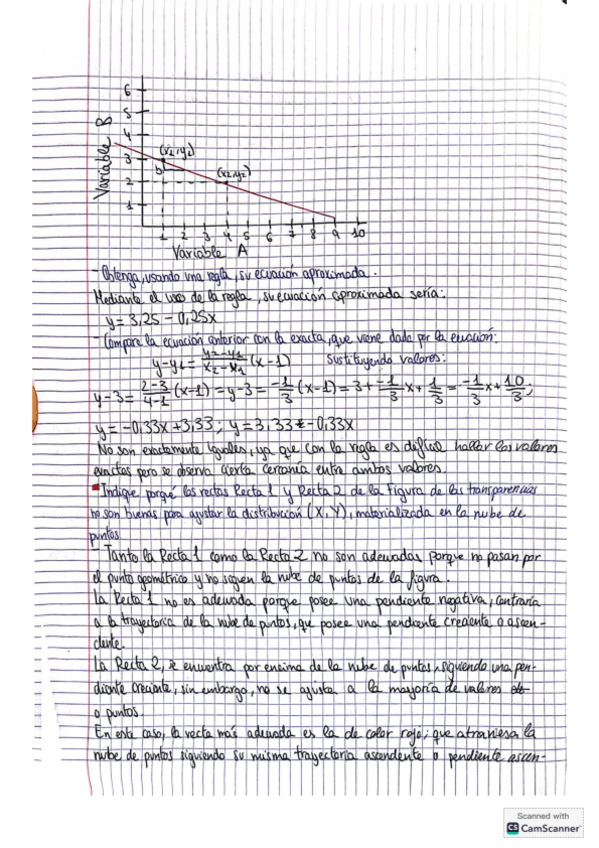 6
5
4
3
2
1
Variable B
(x₁,y₁)
(x₂,y₂)
b
1 2 3 4 5 6 7 8 9 10
Variable A
- Obtenga, usando una regla, su ecuación aproximada.
Mediante el uso de la regla, su ecuación aproximada sería:
y = 3,25 - 0,25x
- Compare la ecuación anterior con la exacta, que viene dada por la ecuación:
y-y₁ = y₂-y₁/x₂-x₁ (x-1) Sustituyendo valores:
y-3 = 2-3/4-1 (x-1) = y-3 = -1/3 (x-1) = 3 + -1/3 x + 1/3 = -1/3 x + 10/3;
y = -0,33x + 3,33; y = 3,33 - 0,33x
No son exactamente iguales, ya que con la regla es difícil hallar los valores
exactos pero se observa cierta cercanía entre ambos valores.
Indique porqué las rectas Recta 1 y Recta 2 de la Figura de las transparencias
no son buenas para ajustar la distribución (X,Y), materializada en la nube de
puntos.
- Tanto la Recta 1 como la Recta 2 no son adecuadas porque no pasan por
el punto geométrico y no siguen la nube de puntos de la figura.
La Recta 1 no es adecuada porque posee una pendiente negativa, contraria
a la trayectoria de la nube de puntos, que posee una pendiente creciente o ascen-
dente.
La Recta 2, se encuentra por encima de la nube de puntos, siguiendo una pen-
diente creciente, sin embargo, no se ajusta a la mayoría de valores
o puntos.
En este caso, la recta más adecuada es la de color rojo; que atraviesa la
nube de puntos siguiendo su misma trayectoria ascendente o pendiente ascen-
Scanned with
CS CamScanner